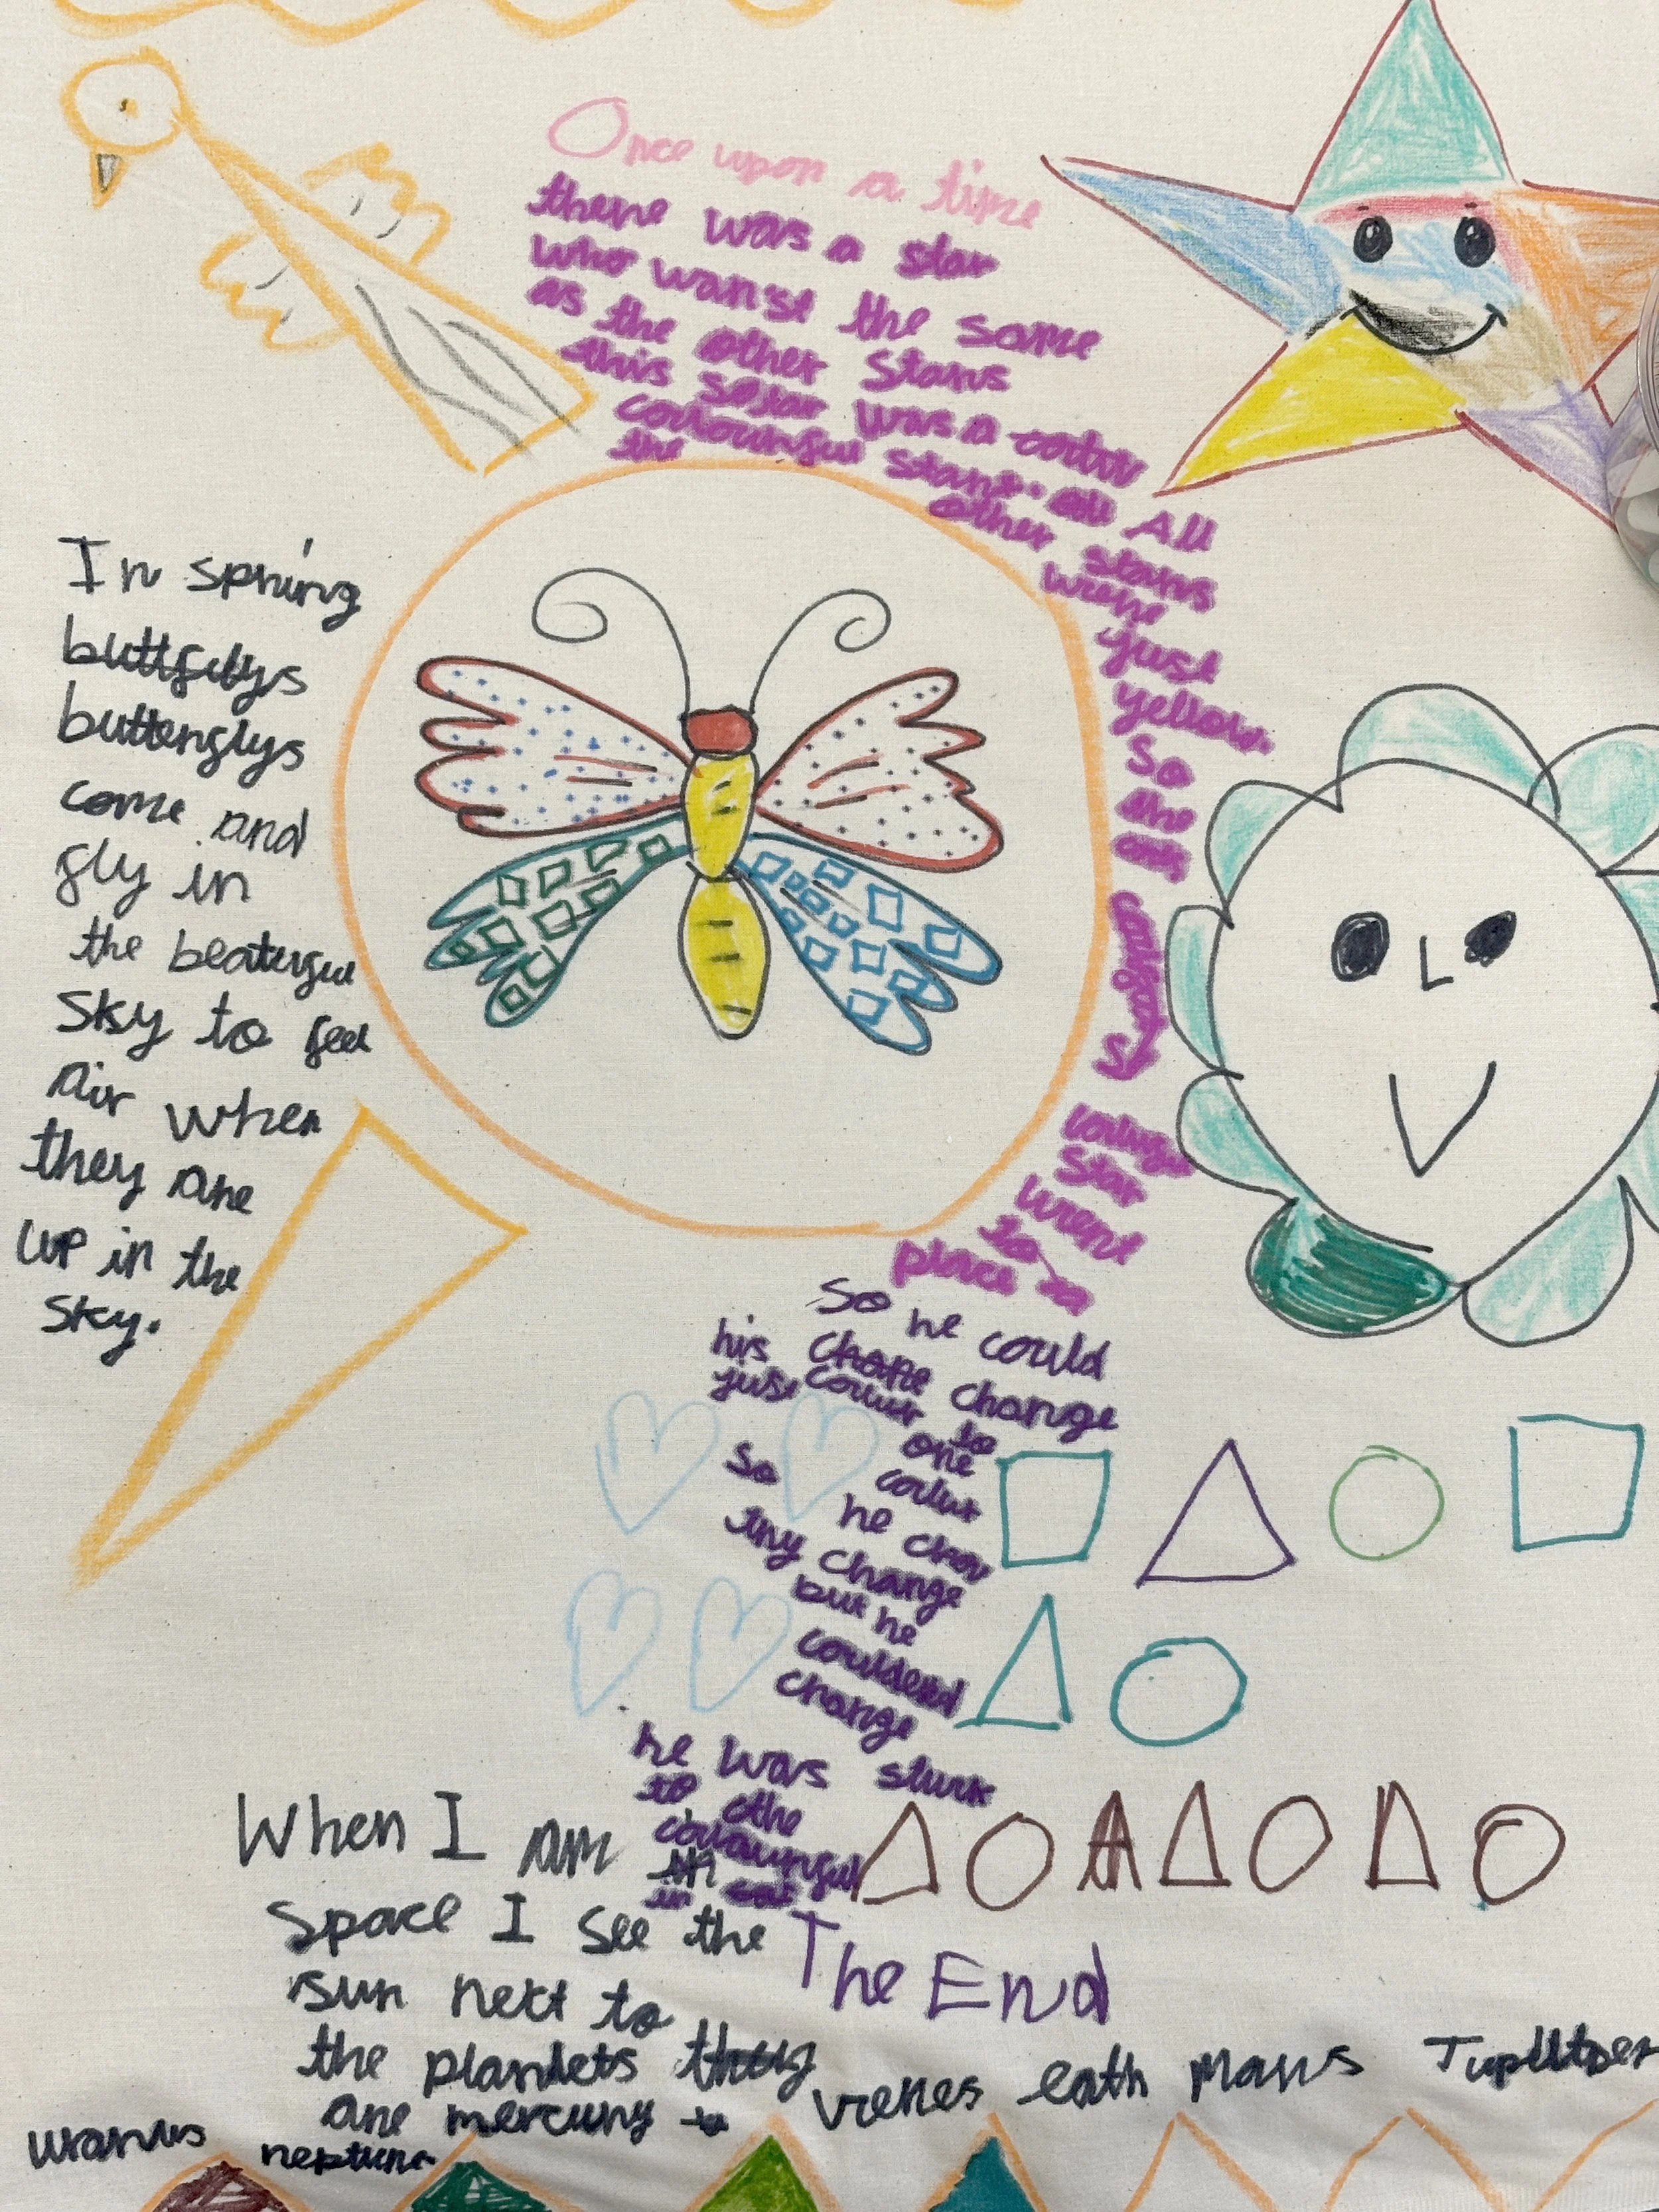 Once upon a time
there was a star
who wan'st the same
as the other stars
this sostar was a
colourful stars. All
the other stars
were
just
yellow.
So
the
star
went
to a
place
So he could
his change
just colour to
one
colur
So he
try change
but he
couldend
change
he was stuck
to the
colourful
in
The End
In spring
buttfillys
butterflys
come and
fly in
the beaterful
sky to feel
air when
they are
up in the
sky.
When I am in
space I see the
sun next to
the plandets they
are mercury venes eath mars Jupiltoer
uranus neptune